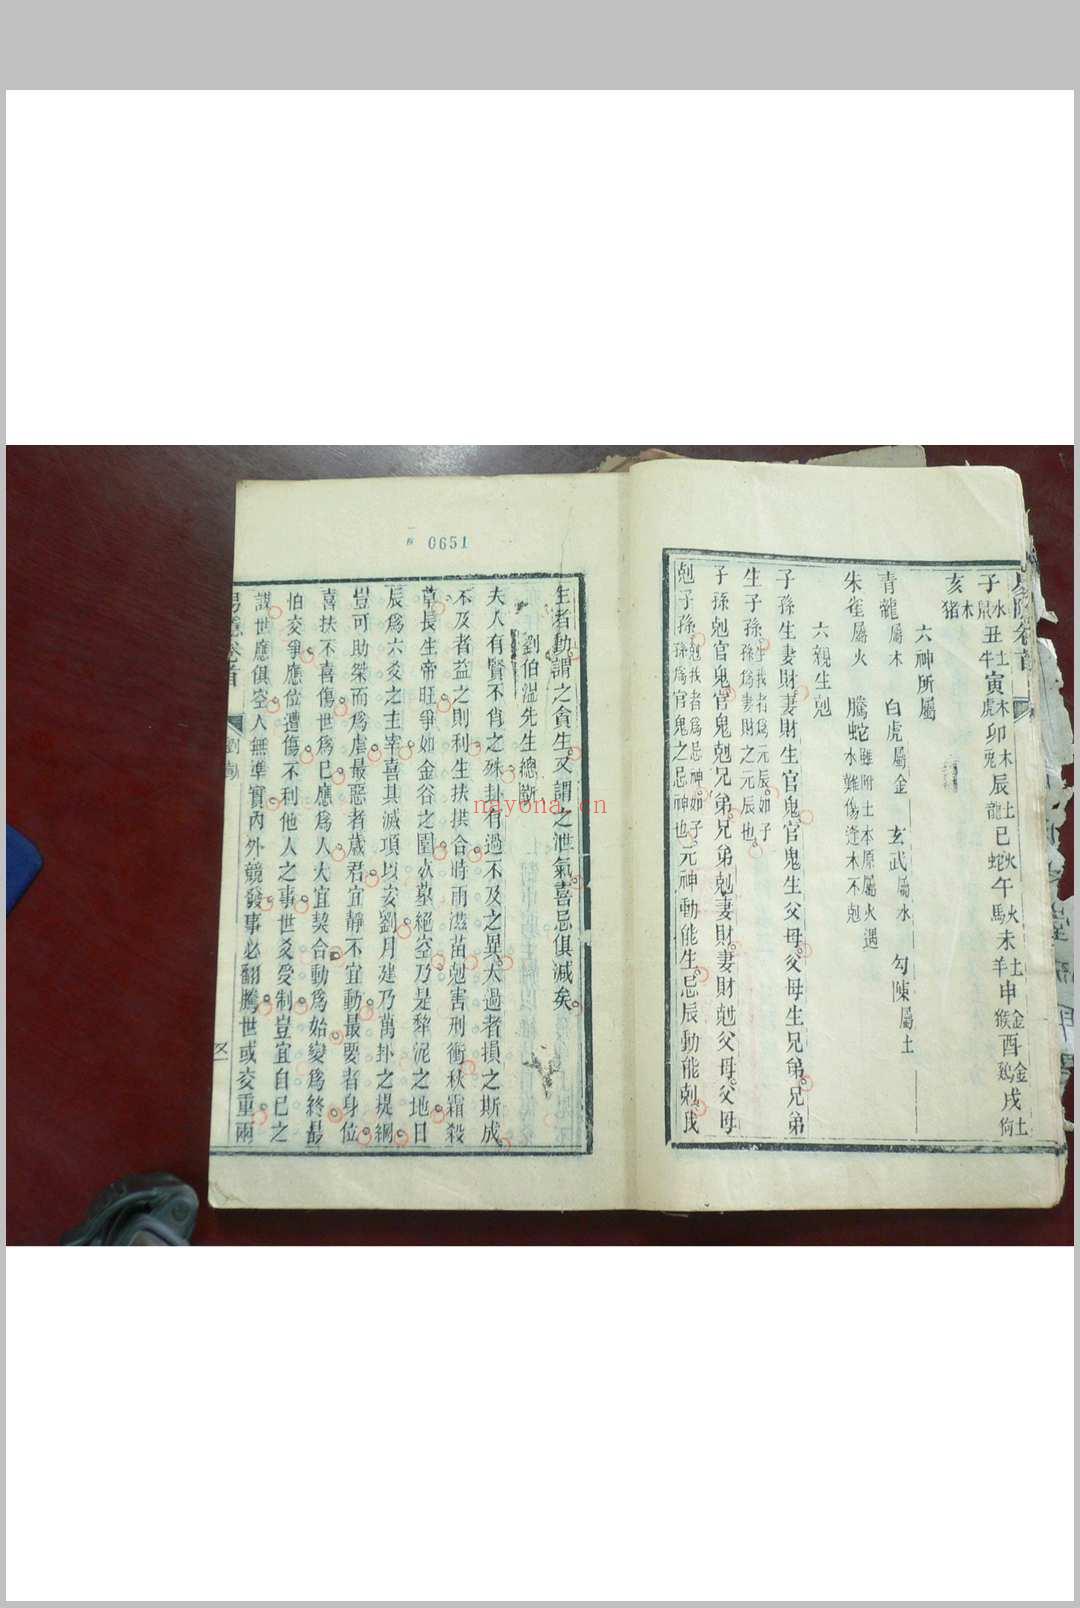 子水鼠丑土牛寅木虎卯木兎辰土龍巳火蛇午火馬未土羊申金猴酉金鷄戌土狗
亥木猪
六神所屬
青龍屬木 白虎屬金 玄武屬水 勾陳屬土
朱雀屬火 騰蛇雖附土本原屬火遇水難傷逢木不剋
六親生剋
子孫生妻財妻財生官鬼官鬼生父母父母生兄弟兄弟
生子孫生我者爲元辰如子孫爲妻財之元辰也
子孫剋官鬼官鬼剋兄弟兄弟剋妻財妻財剋父母父母
剋子孫剋我者爲忌神如子孫爲官鬼之忌神也元神動能生忌辰動能剋我
0651
生者動謂之貪生又謂之泄氣喜忌俱減矣
劉伯溫先生總斷
夫人有賢不肖之殊卦有過不及之異太過者損之斯成
不及者益之則利生扶拱合時雨滋苗剋害刑衝秋霜殺
草長生帝旺爭如金谷之園死墓絕空乃是犂泥之地日
辰爲六爻之主宰喜其滅項以安劉月建乃萬卦之提綱
豈可助桀而爲虐最惡者歲君宜靜不宜動最要者身位
喜扶不喜傷世爲已應爲人大宜契合動爲始變爲終最
怕交爭應位遭傷不利他人之事世爻受制豈宜自已之
謀世應俱空人無準實內外競發事必翻騰世或交重兩
易隱卷首
nayona.cn